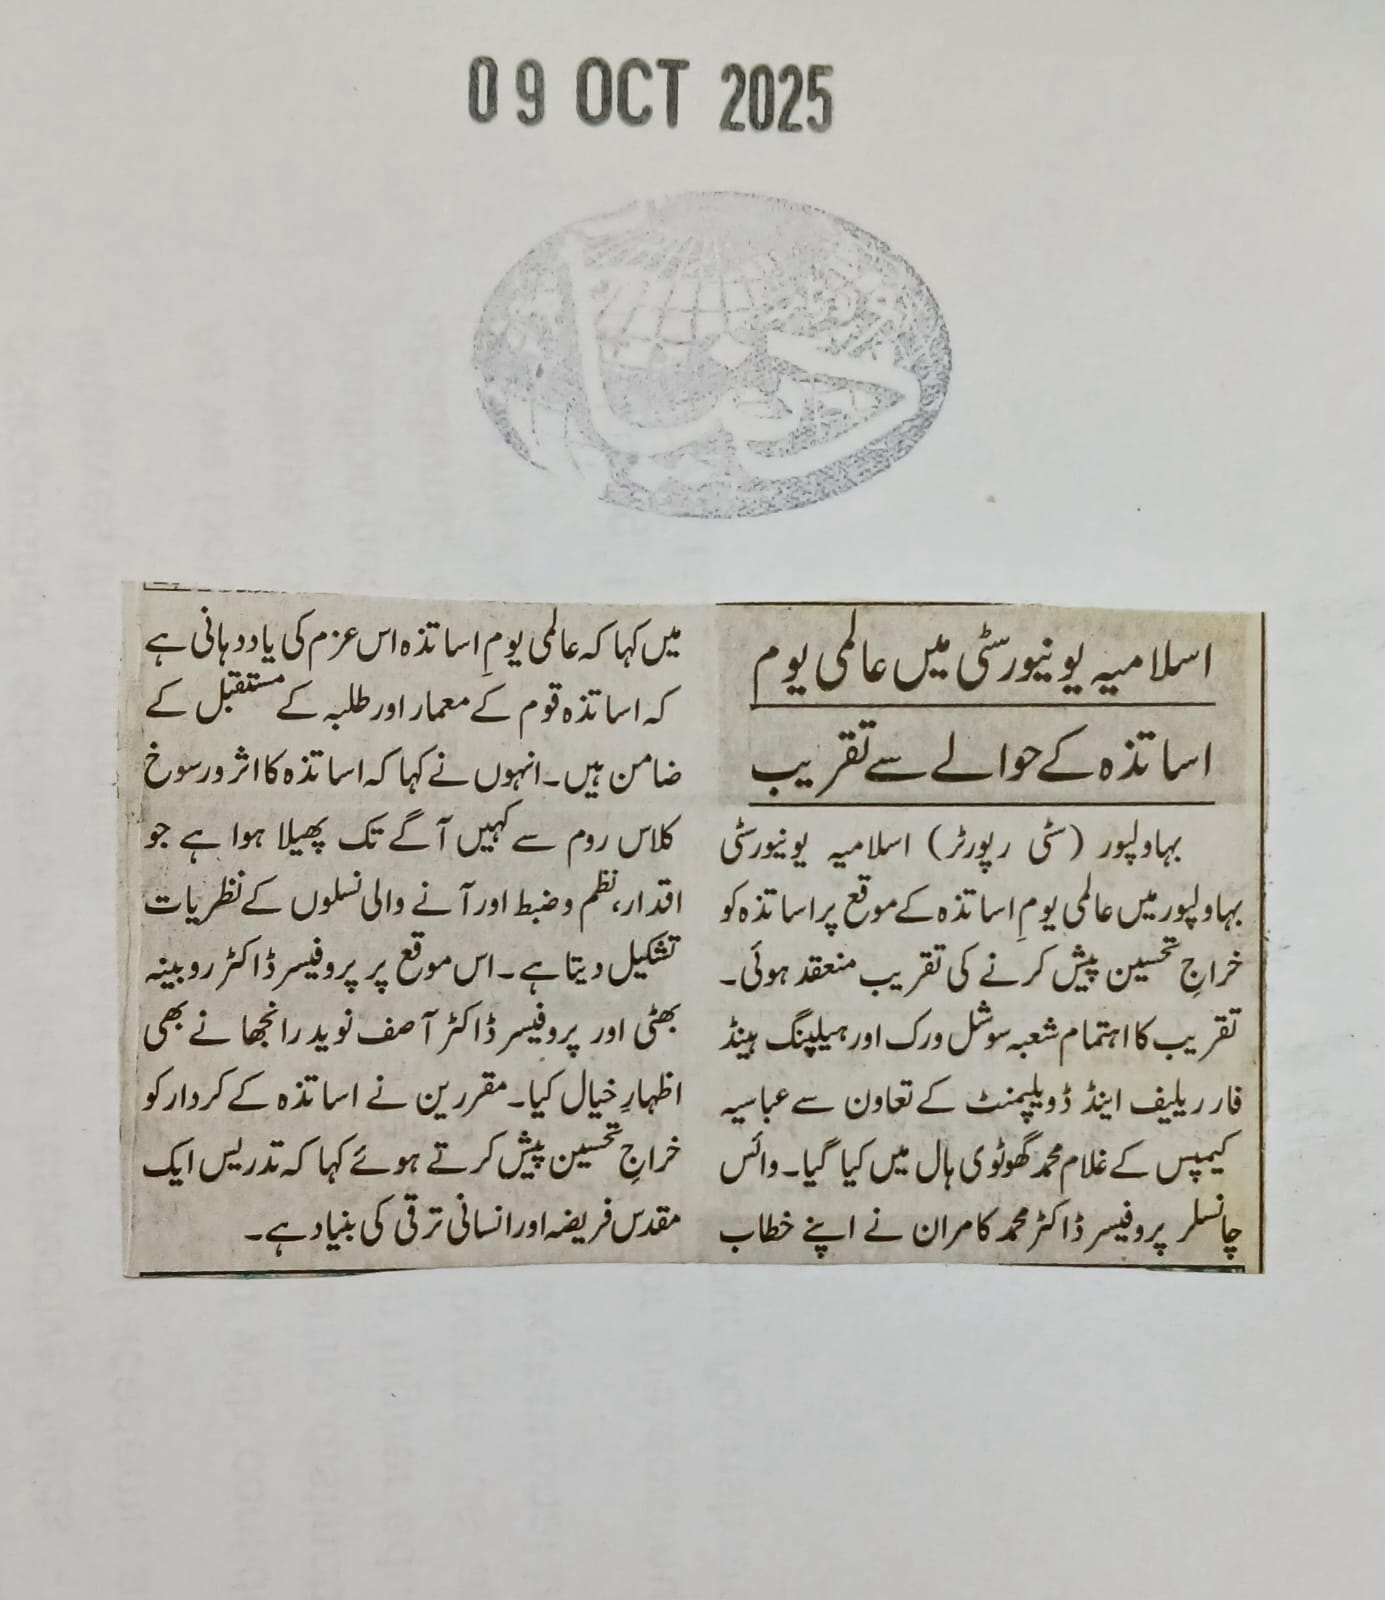 09 OCT 2025
دنیا
اسلامیہ یونیورسٹی میں عالمی یوم
اساتذہ کے حوالے سے تقریب
بہاولپور (سٹی رپورٹر) اسلامیہ یونیورسٹی
بہاولپور میں عالمی یومِ اساتذہ کے موقع پر اساتذہ کو
خراجِ تحسین پیش کرنے کی تقریب منعقد ہوئی۔
تقریب کا اہتمام شعبہ سوشل ورک اور ہیلپنگ ہینڈ
فار ریلیف اینڈ ڈویلپمنٹ کے تعاون سے عباسیہ
کیمپس کے غلام محمد گھوٹوی ہال میں کیا گیا۔ وائس
چانسلر پروفیسر ڈاکٹر محمد کامران نے اپنے خطاب
میں کہا کہ عالمی یومِ اساتذہ اس عزم کی یاددہانی ہے
کہ اساتذہ قوم کے معمار اور طلبہ کے مستقبل کے
ضامن ہیں۔ انہوں نے کہا کہ اساتذہ کا اثر ورسوخ
کلاس روم سے کہیں آگے تک پھیلا ہوا ہے جو
اقدار، نظم وضبط اور آنے والی نسلوں کے نظریات
تشکیل دیتا ہے۔ اس موقع پر پروفیسر ڈاکٹر روبینہ
بھٹی اور پروفیسر ڈاکٹر آصف نوید رانجھا نے بھی
اظہارِ خیال کیا۔ مقررین نے اساتذہ کے کردار کو
خراجِ تحسین پیش کرتے ہوئے کہا کہ تدریس ایک
مقدس فریضہ اور انسانی ترقی کی بنیاد ہے۔